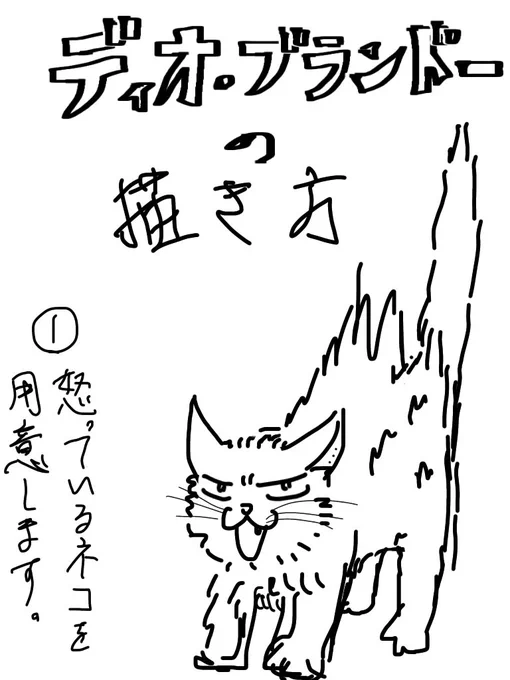 ディオ・ブランドー
の
描き方
①
怒っているネコを
用意します。